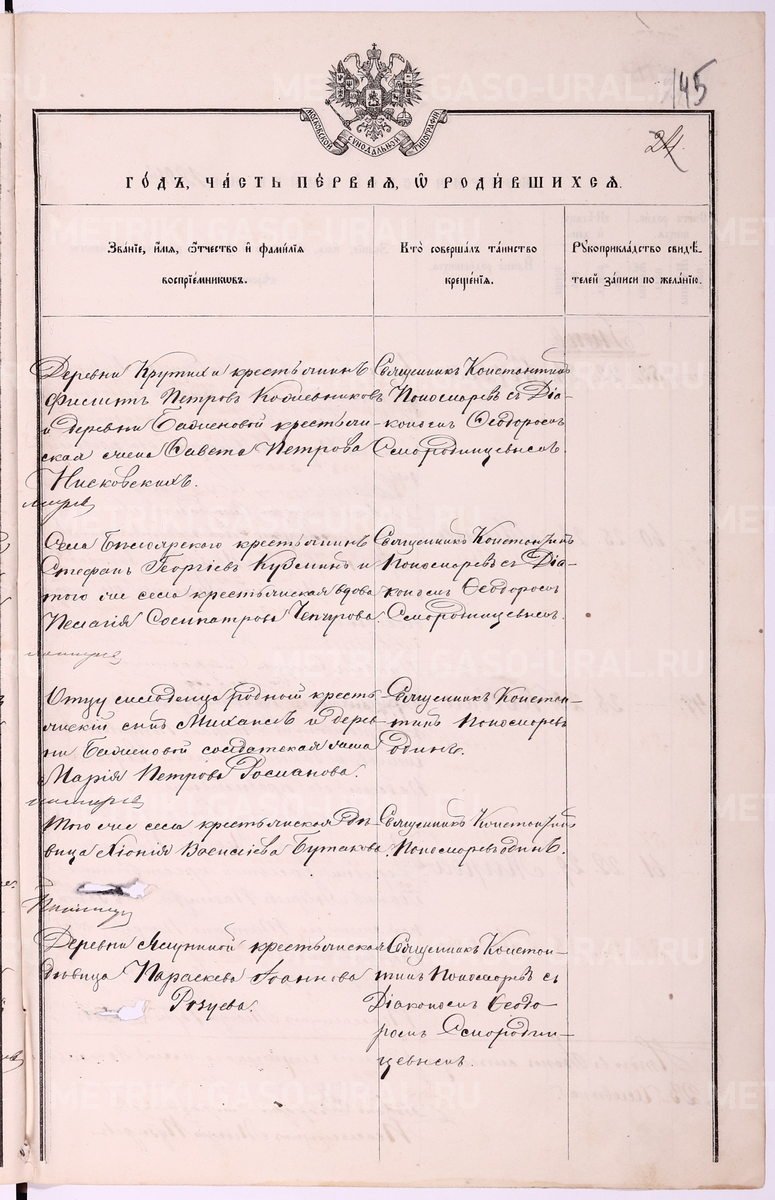 145
24.
МОСКОВСКОЙ СѴНОДАЛЬНОЙ ТИПОГРАФІИ
ГО́ДЪ, ЧА́СТЬ ПЕ́РВАЯ, Ѡ РОДИ́ВШИХСЯ.
Зва́нїе, и́мя, ѻ́тчество и҆ фами́лїя
воспрїе́мникѡвъ.
Кто̀ соверша́лъ та́инство
креще́нїя.
Рꙋкоприкла́дство свидѣ́-
телей за́писи по жела́нїю.
Деревни Крутихи крестьянинъ
Филиппъ Петровъ Кодлевниковъ
и деревни Баженовой крестьян-
ская жена Савета Петрова
Нисковскихъ.
Священникъ Константинъ
Пономаревъ съ Діа-
кономъ Ѳеодоромъ
Смородинцевымъ.
Села Бѣлоярскаго крестьянинъ
Стефанъ Георгіевъ Кузминъ и
того же села крестьянская вдова
Пелагія Сосипатрова Чепчугова.
Священникъ Константинъ
Пономаревъ съ Діа-
кономъ Ѳеодоромъ
Смородинцевымъ.
Отцу младенца родной кресть-
янскій сынъ Михаилъ и дерев-
ни Баженовой солдатская жена
Марія Петрова Росманова.
Священникъ Констан-
тинъ Пономаревъ
одинъ.
Того же села крестьянская дѣ-
вица Хіонія Василіева Бутакова.
Священникъ Константинъ
Пономаревъ одинъ.
Деревни Ялуниной крестьянская
дѣвица Параскева Іоаннова
Рогуева.
Священникъ Констан-
тинъ Пономаревъ съ
Діакономъ Ѳеодо-
ромъ Смородин-
цевымъ.
METRIKI.GASO-URAL.RU